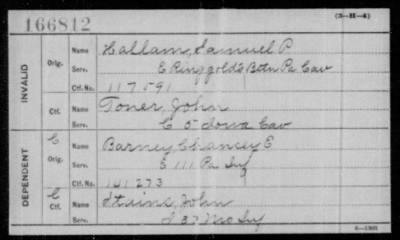 166812
(3-M-4)
INVALID
Orig.
Name Hallam, Samuel P
Serv. E Ringgold's Battn Pa Cav
Ctf. No. 117591
Ctf.
Name Toner, John
Serv. C 5 Iowa Cav
DEPENDENT
C
Orig.
Name Barney, Chancey E
Serv. E 111 Pa Inf
Ctf. No. 141273
C
Ctf.
Name Stains, John
Serv. I 37 Mo Inf